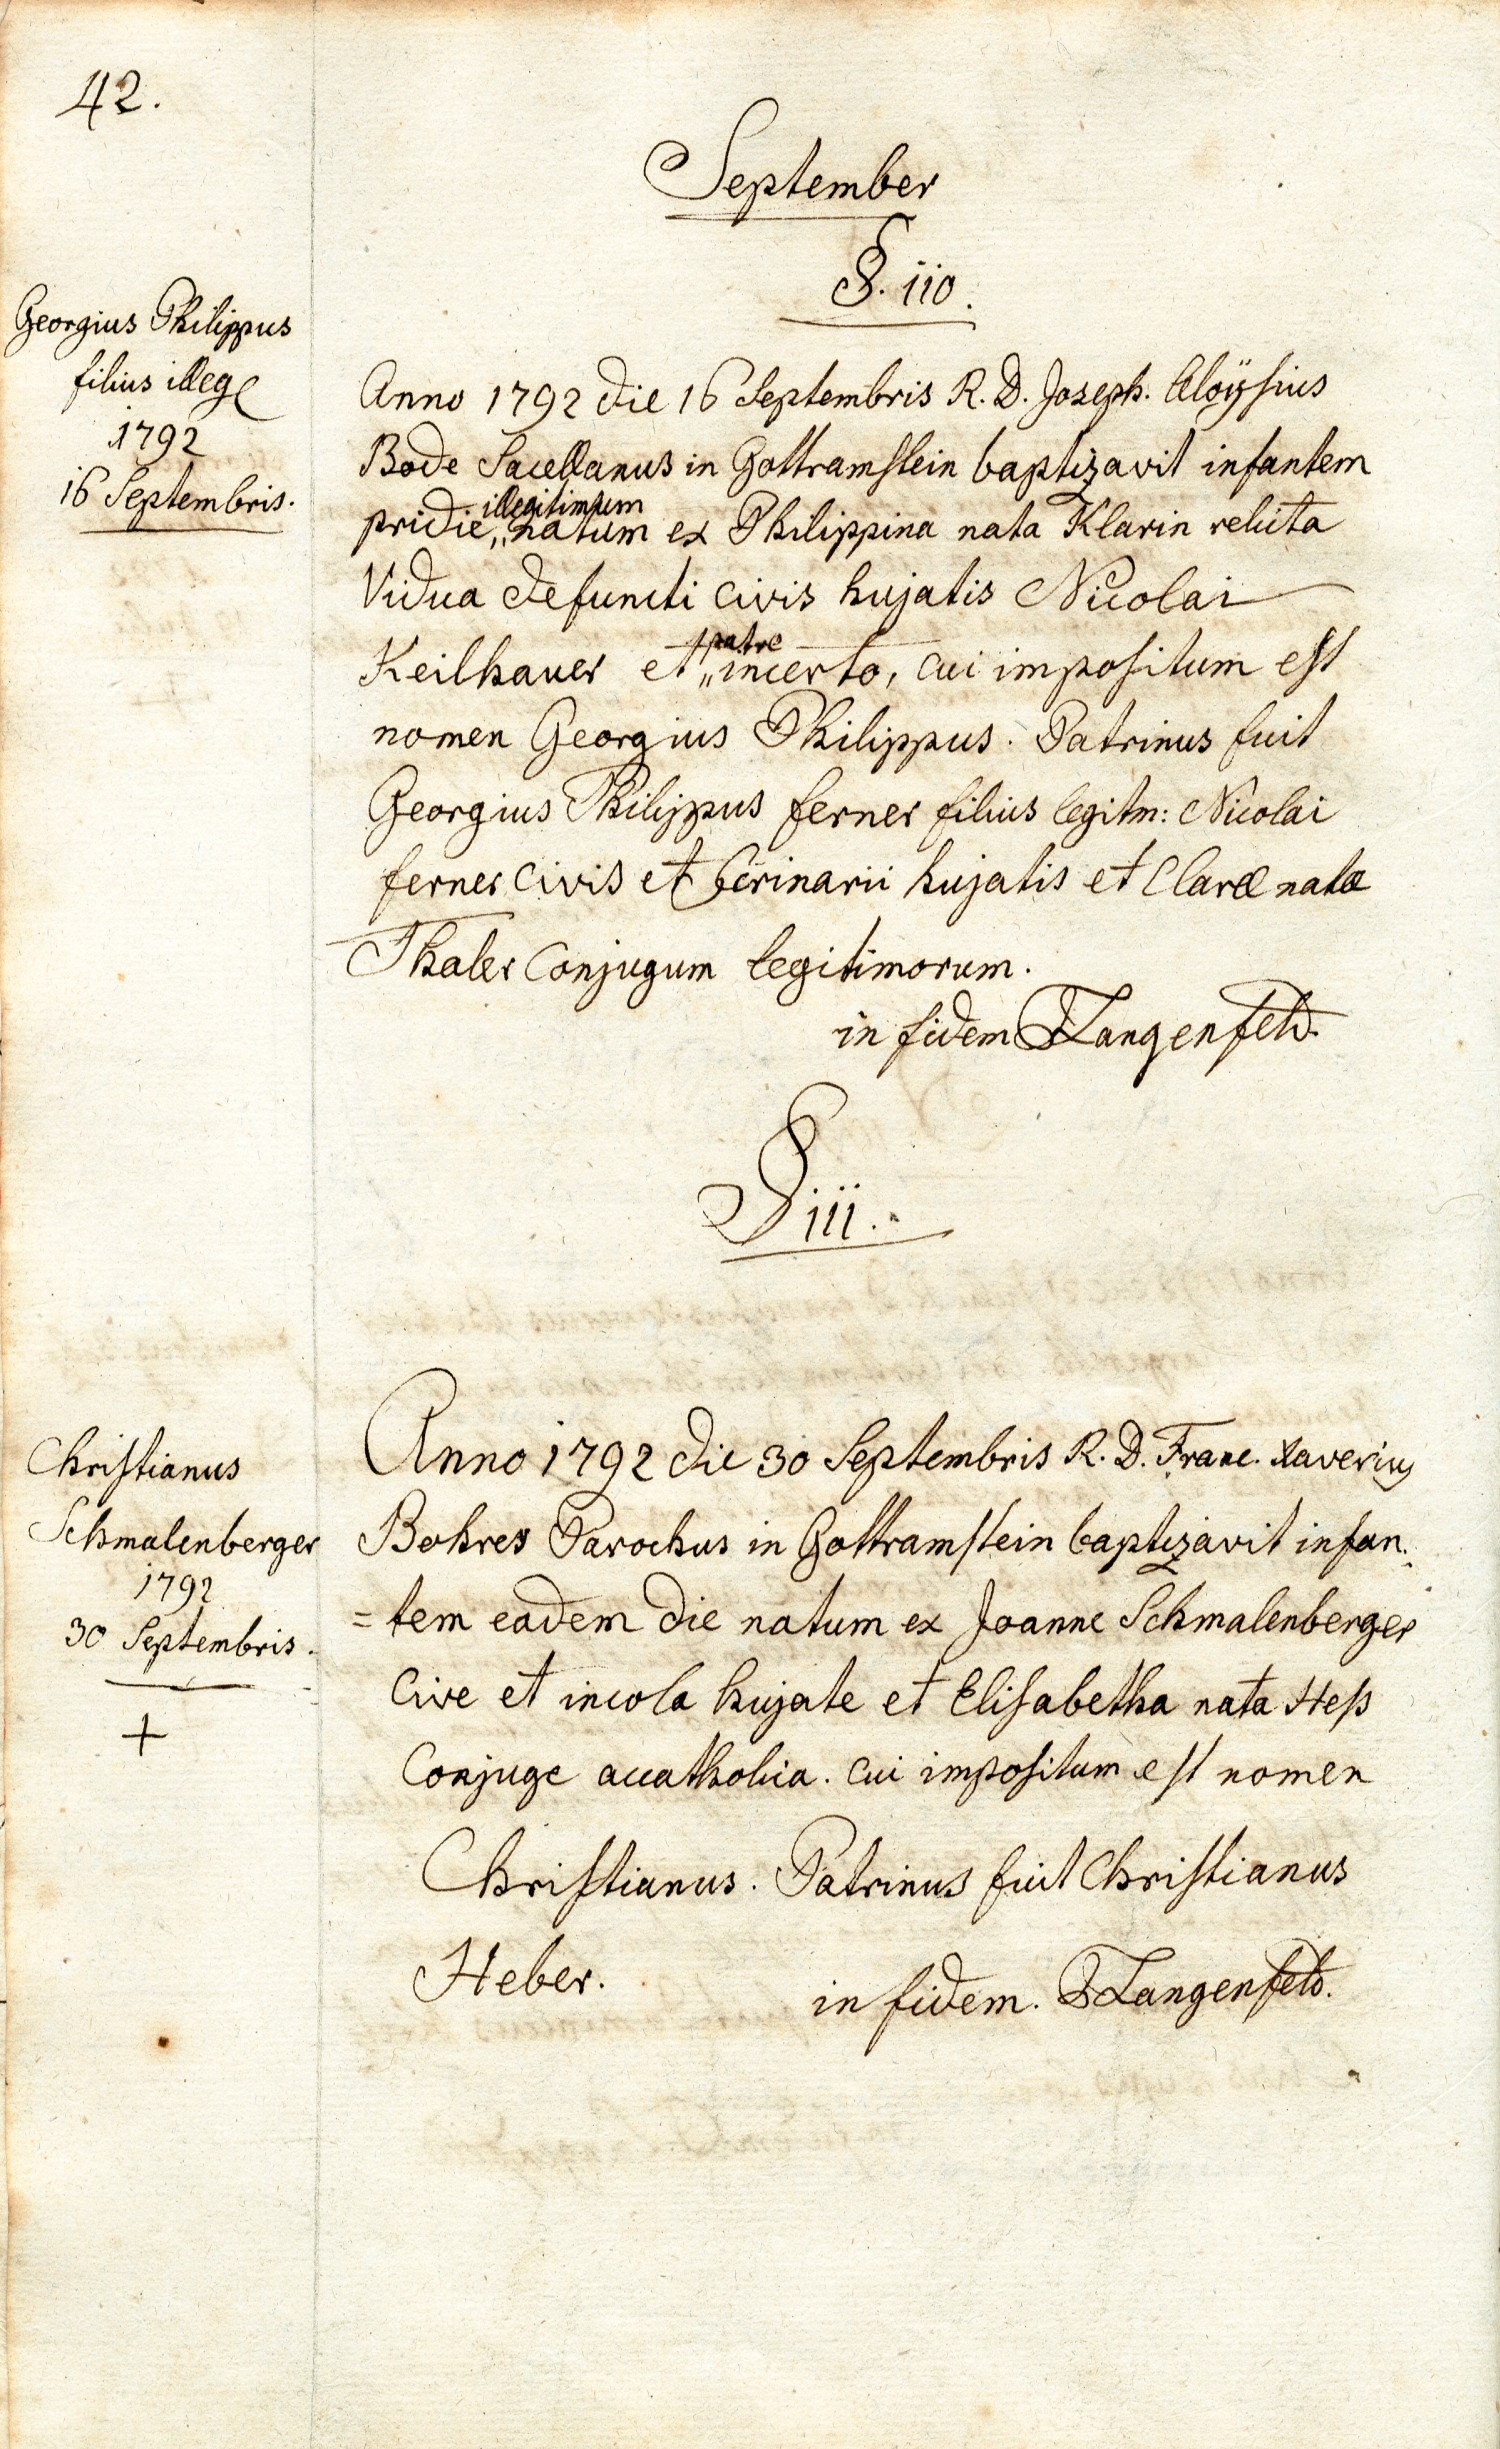 42.
September
§. 110.
Georgius Philippus
filius illeg
1792
16 Septembris.
Anno 1792 die 16 Septembris R. D. Joseph. Aloÿsius
Bode Sacellanus in Gottramstein baptizavit infantem
illegitimum
pridie,, natum ex Philippina nata Klarin relicta
Vidua defuncti civis hujatis Nicolai
patre
Keilhauer et ,,incerto, cui impositum est
nomen Georgius Philippus. Patrinus fuit
Georgius Philippus ferner filius legitm: Nicolai
ferner civis et hujatis et Claræ natæ
Thaler Conjugum legitimorum.
in fidem Langenfeld.
§ 111.
Christianus
Schmalenberger
1792
30 Septembris.
+
Anno 1792 die 30 Septembris R. D. Franc. Xaverius
Bohrer Parochus in Gottramstein baptizavit infan=
=tem eadem die natum ex Joanne Schmalenberger
Cive et incola hujate et Elisabetha nata Heß
Conjuge accatholica. cui impositum est nomen
Christianus. Patrinus fuit Christianus
Heber.
in fidem. Langenfeld.